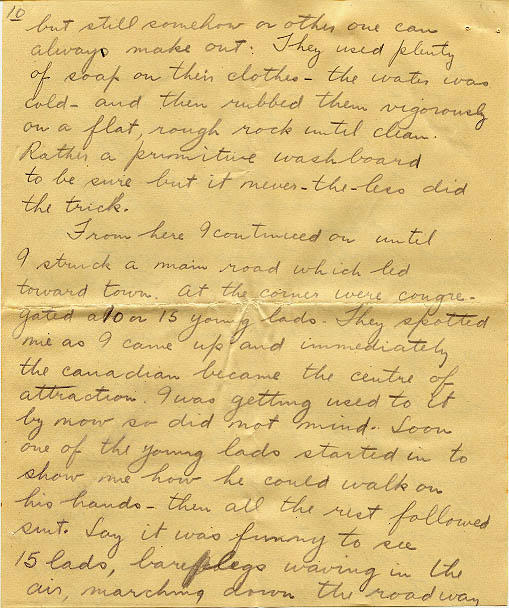 10
but still somehow or other one can
always make out. They used plenty
of soap on their clothes - the water was
cold - and then rubbed them vigorously
on a flat, rough rock until clean.
Rather a primitive washboard
to be sure but it never-the-less did
the trick.
From here I continued on until
I struck a main road which led
toward town. At the corner were congre-
gated a 10 or 15 young lads. They spotted
me as I came up and immediately
the canadian became the centre of
attraction. I was getting used to it
by now so did not mind. Soon
one of the young lads started in to
show me how he could walk on
his hands - then all the rest followed
suit. Say it was funny to see
15 lads, bare legs waving in the
air, marching down the roadway